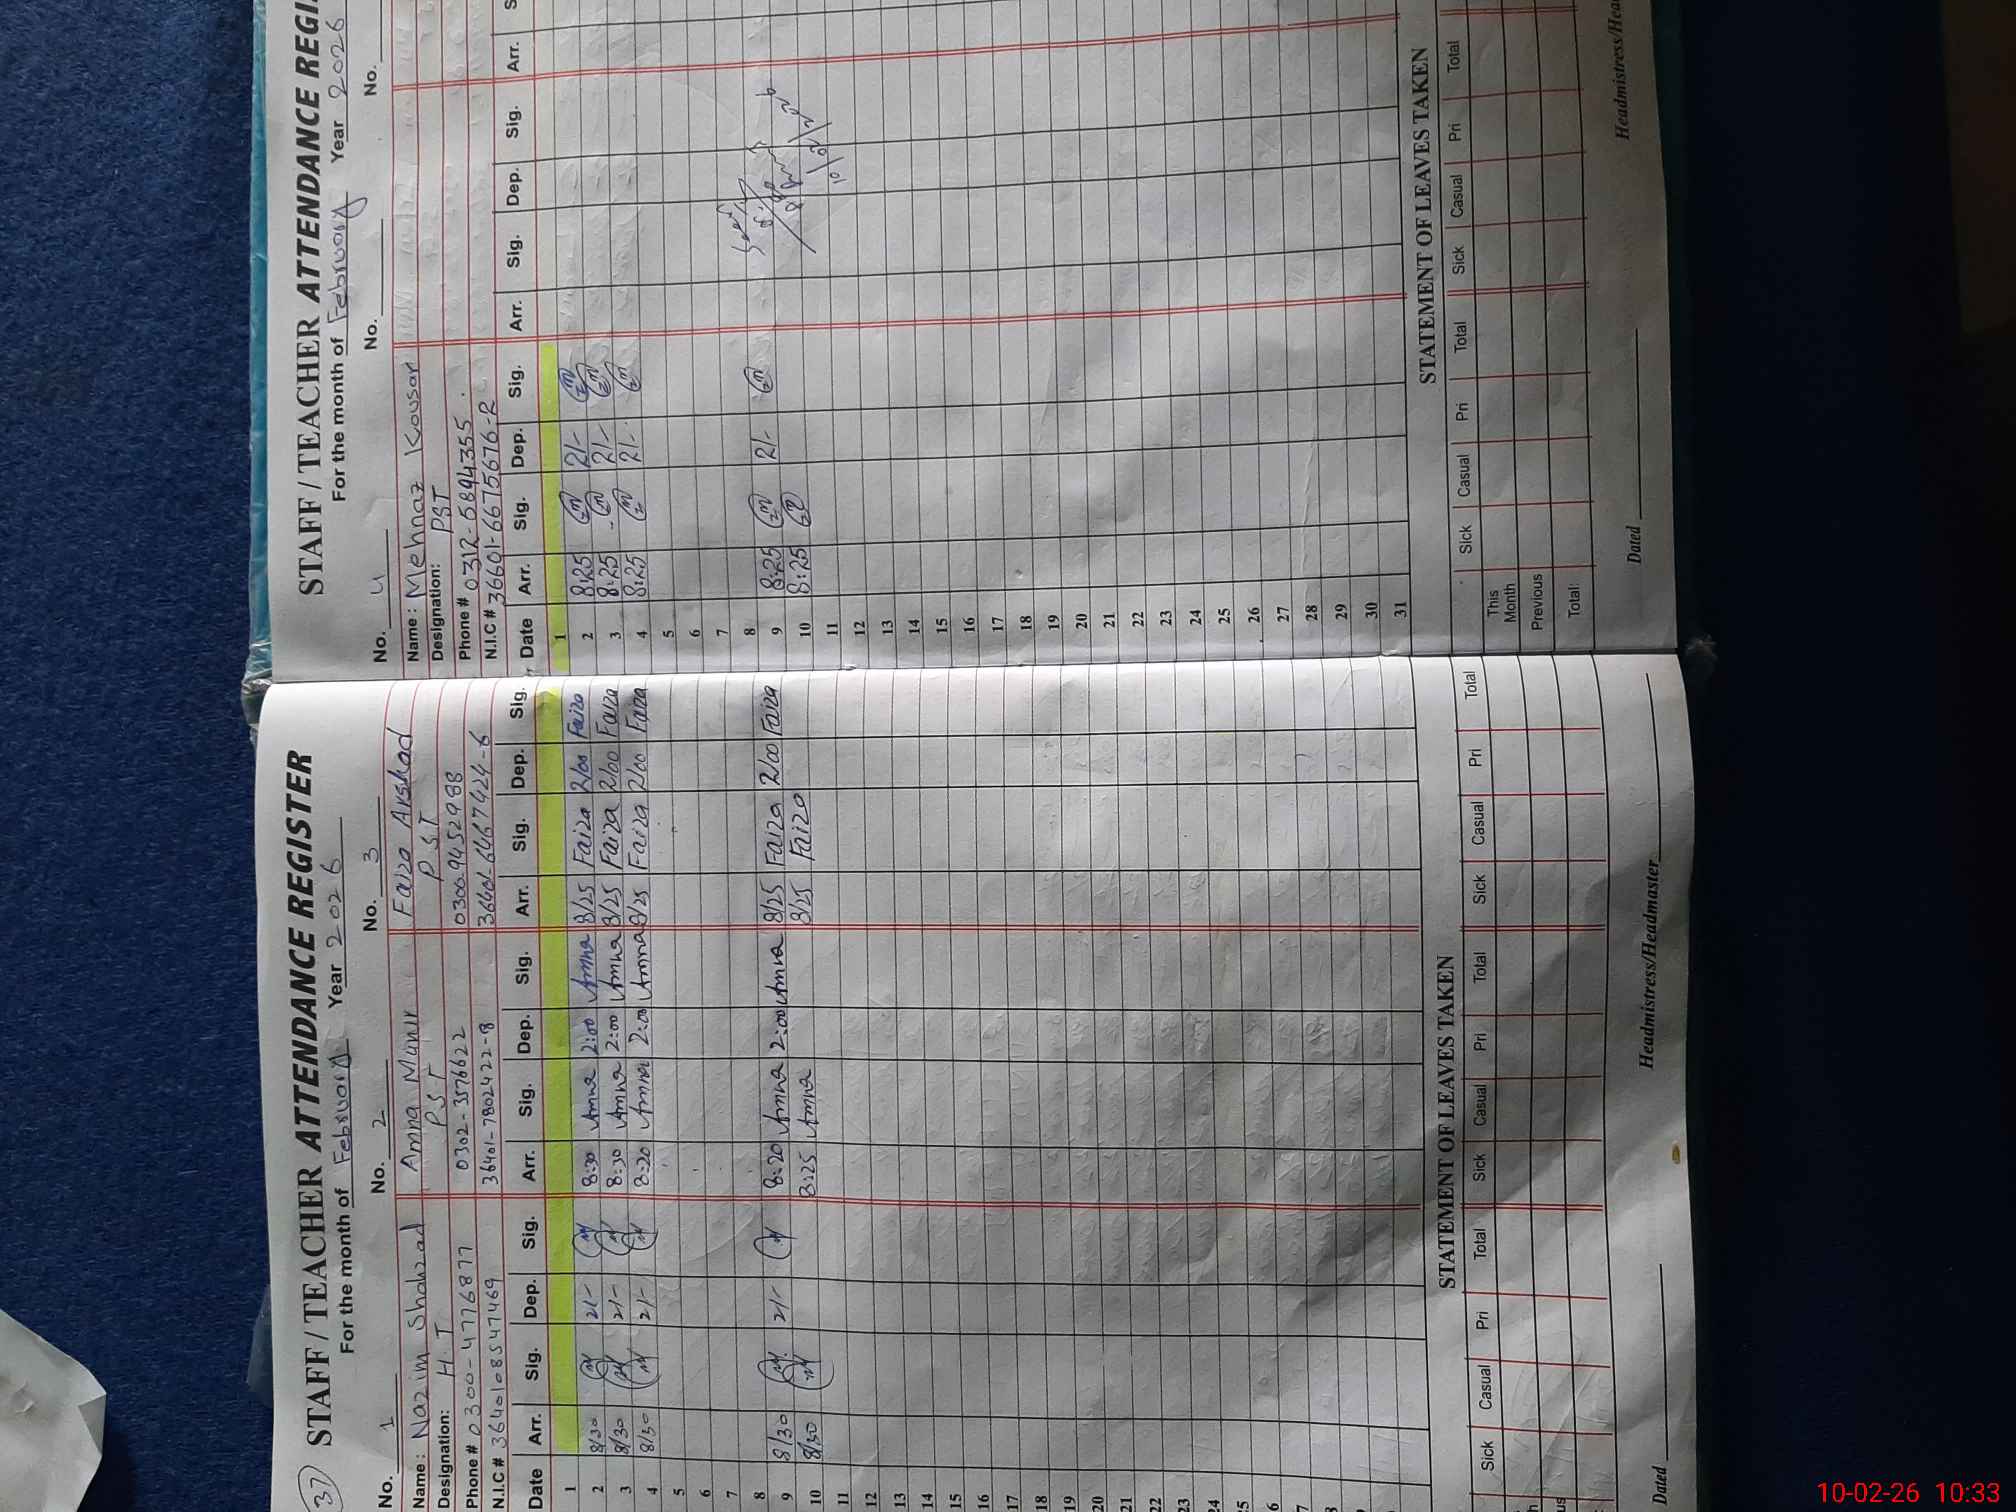 37
STAFF / TEACHER ATTENDANCE REGISTER
For the month of February Year 2026
No. 1 No. 2 No. 3
Name : Nazim Shahzad Amna Munir Faiza Arshad
Designation: H.T P S T P S T
Phone # 0300-4776877 0302-3576622 03009452988
N.I.C # 3640108547469 36401-7802422-8 36401-6467424-6
Date Arr. Sig. Dep. Sig. Arr. Sig. Dep. Sig. Arr. Sig. Dep. Sig.
1
2 8/30 2/- 8:30 Amna 2:00 Amna 8/25 Faiza 2/00 Faiza
3 8/30 2/- 8:30 Amna 2:00 Amna 8/25 Faiza 2/00 Faiza
4 8/30 2/- 8:20 Amna 2:00 Amna 8/25 Faiza 2/00 Faiza
5
6
7
8
9 8/30 2/- 8:20 Amna 2:00 Amna 8/25 Faiza 2/00 Faiza
10 8/30 8:25 Amna 8/25 Faiza
11
12
13
14
15
16
17
18
19
20
21
22
23
24
25
6
7
8
STATEMENT OF LEAVES TAKEN STATEMENT OF LEAVES TAKEN
Sick Casual Pri Total Sick Casual Pri Total Sick Casual Pri Total
h
us
Dated Headmistress/Headmaster
STAFF / TEACHER ATTENDANCE REGI
For the month of February Year 2026
No. 4 No. No.
Name : Mehnaz Kousar
Designation: PST
Phone # 0312-6894355
N.I.C # 36601-6675676-2
Date Arr. Sig. Dep. Sig. Arr. Sig. Dep. Sig. Arr. S
1
2 8:25 2/-
3 8:25 2/-
4 8:25 2/-
5
6
7
8
9 8:25 2/-
10 8:25
10/02/26
11
12
13
14
15
16
17
18
19
20
21
22
23
24
25
26
27
28
29
30
31
STATEMENT OF LEAVES TAKEN
Sick Casual Pri Total Sick Casual Pri Total
This Month
Previous
Total:
Dated Headmistress/Hea
10-02-26 10:33